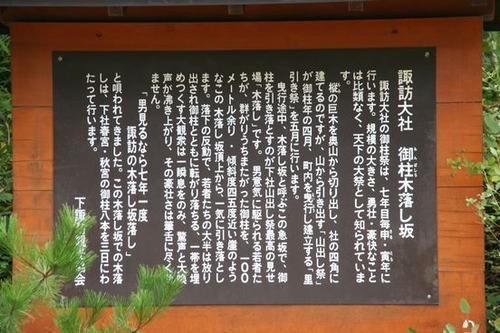 諏訪大社　御柱木落し坂
諏訪大社の御柱祭は、七年目毎申・寅年に
行います。規模の大きさ、勇壮・豪快なこと
は比類なく、天下の大祭として知られていま
す。
樅の巨木を奥山から切り出し、社の四角に
建てるのですが、山から引き出す「山出し祭」
が御柱年の四月、町内を曳行し建立する「里
引き祭」を五月に行います。
曳行途中、木落し坂と呼ぶこの急坂で、御
柱を引き落とすのが下社山出し祭最高の見せ
場「木落し」です。男意気に駆られる若者た
ちが、群がりうちまたがった御柱を、一〇〇
メートル余り・傾斜度四五度近い崖のよう
なこの木落し坂頂上から、一気に引き落とし
ます。落下の反動で、若者たちの大半は放り
出され御柱とともに転がり落ちる。一帯を埋
めつくす大観衆は一瞬息をのみ、驚声と大喚
声が沸き上がり、その豪壮さは筆舌に尽くせ
ません。
「男見るなら七年一度
諏訪の木落し坂落し」
と唄われてきました。この木落し坂での木落
しは、下社春宮・秋宮の御柱八本を三日にわ
たって行います。
下諏訪
会